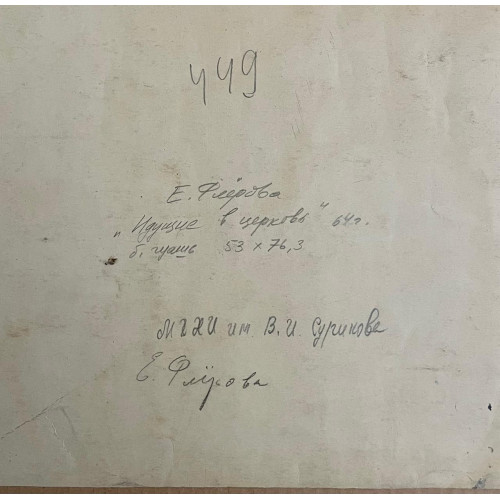 449
Е. Флёрова
„Идущие в церковь" 64 г.
б, гуашь 53 x 76,3
МГХИ им. В.И. Сурикова
Е. Флёрова